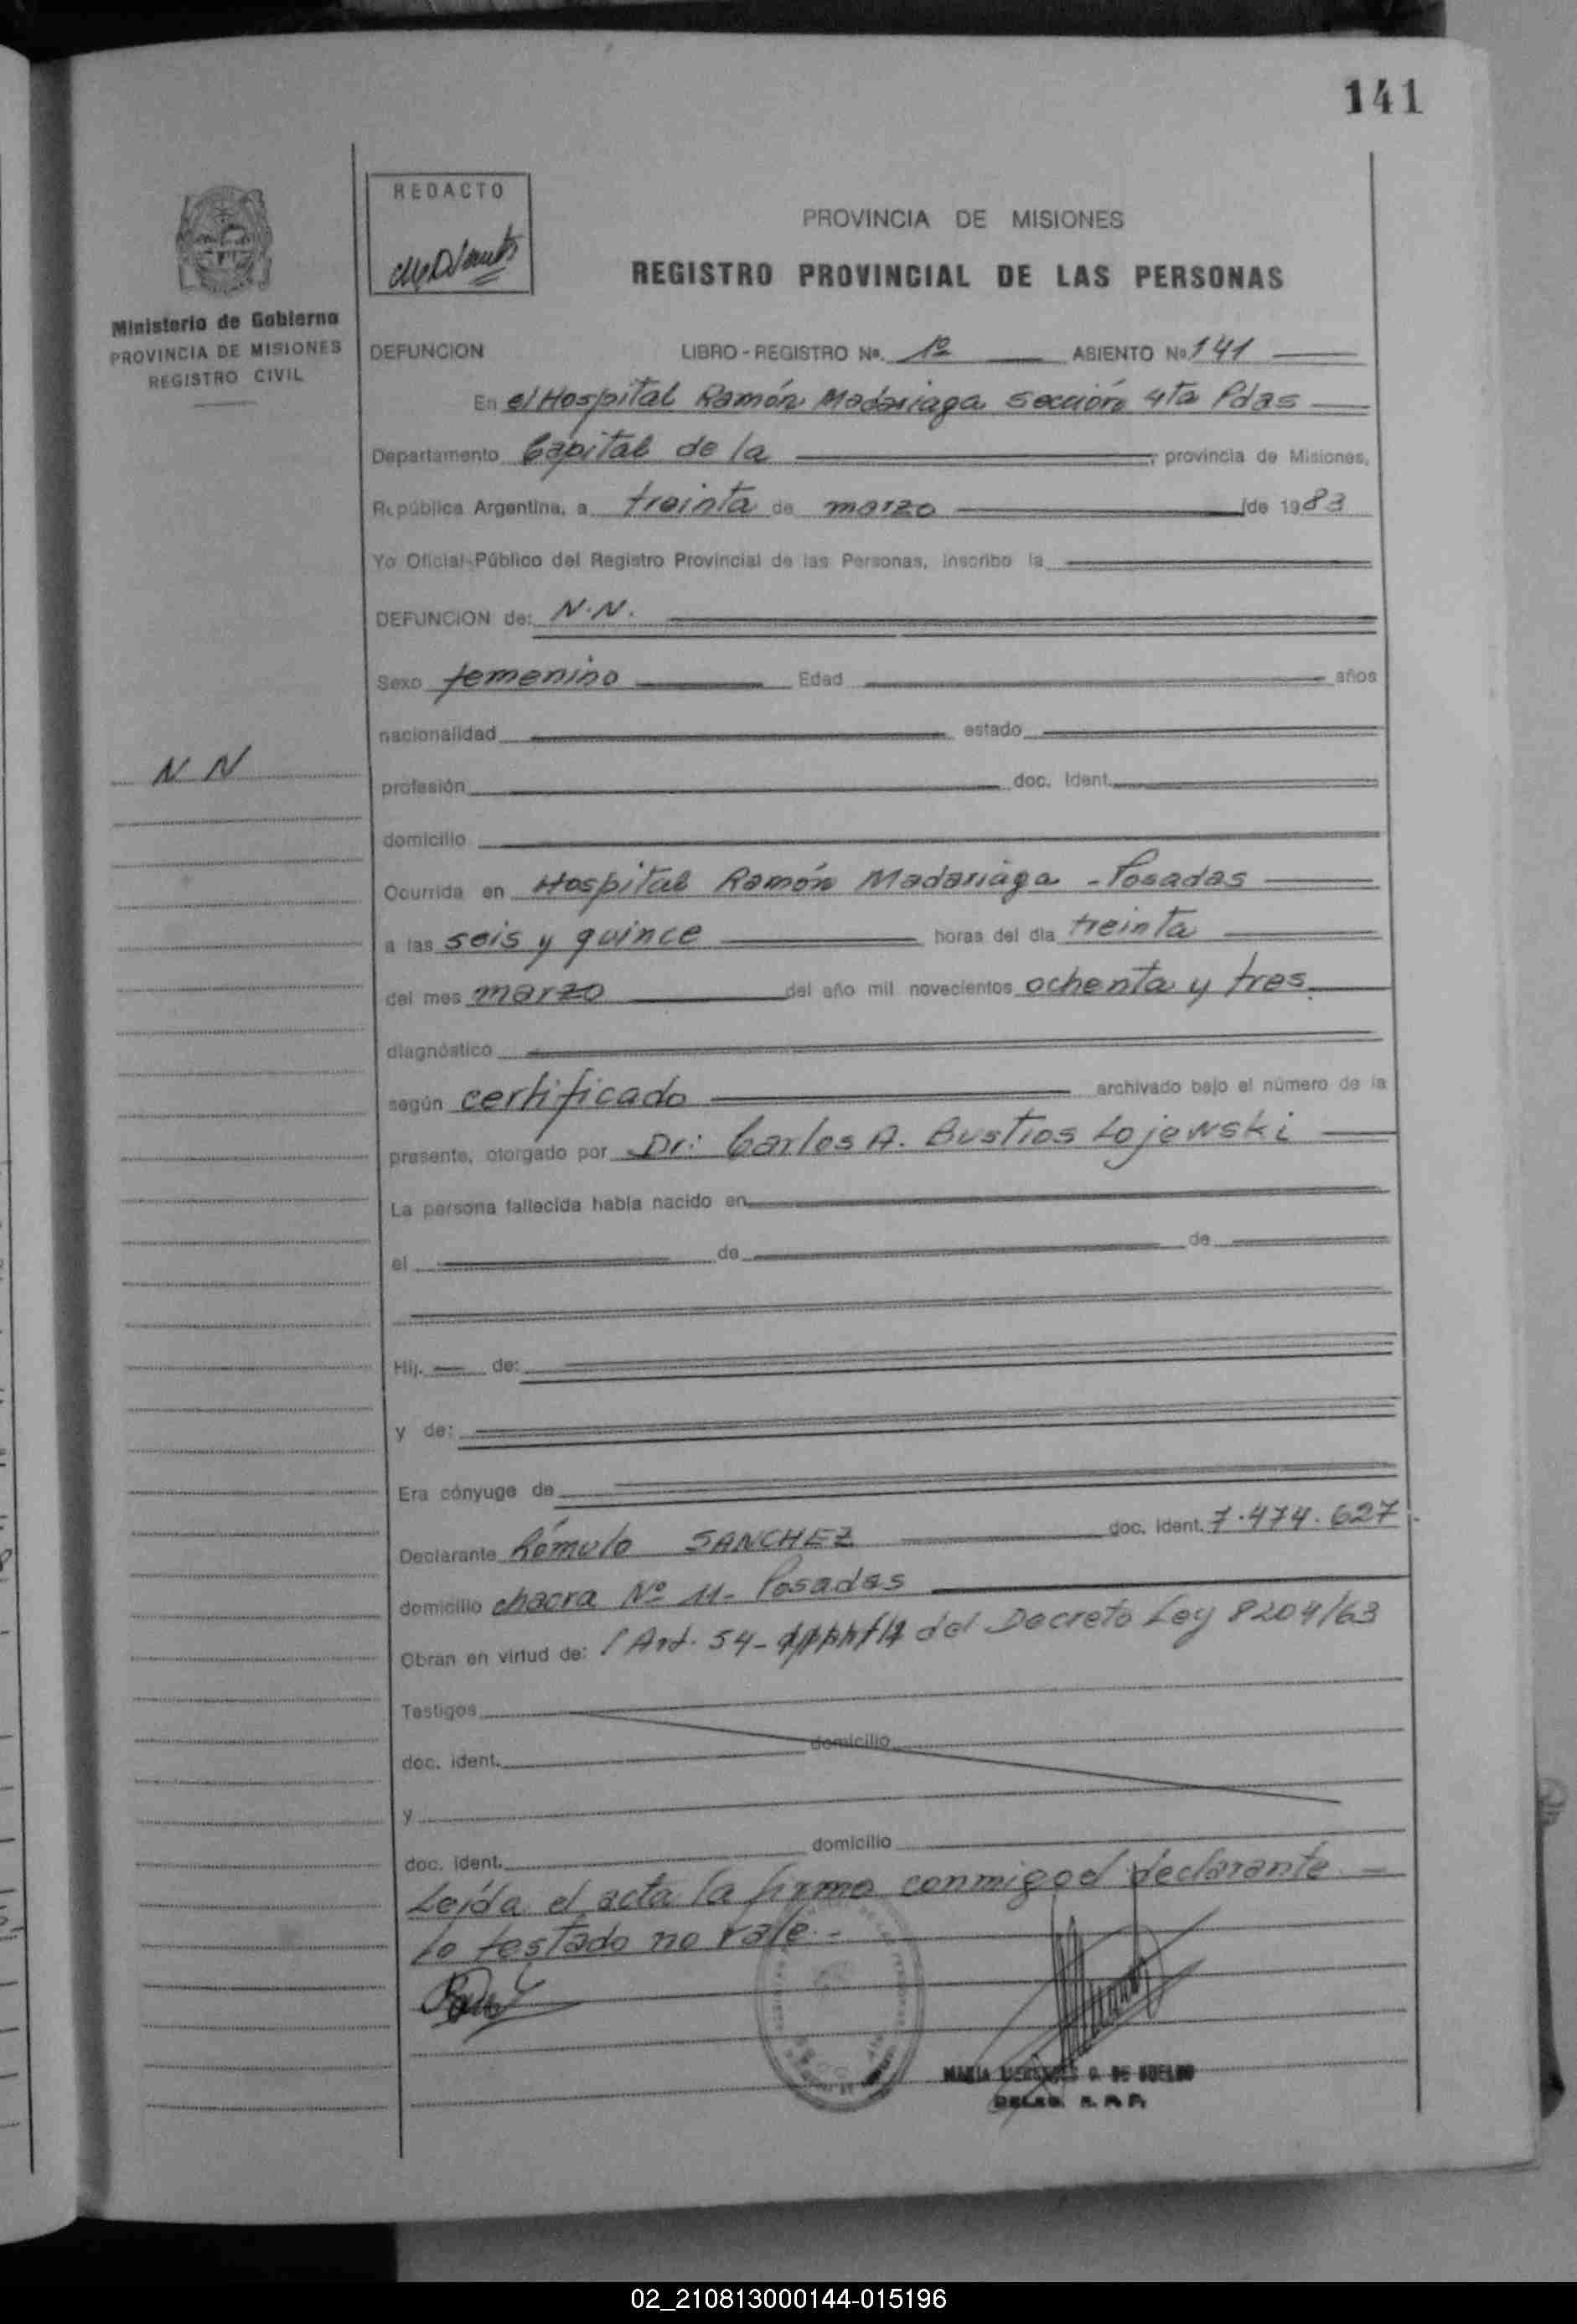 141
REDACTO
PROVINCIA DE MISIONES
REGISTRO PROVINCIAL DE LAS PERSONAS
Ministerio de Gobierno
PROVINCIA DE MISIONES
REGISTRO CIVIL
DEFUNCION LIBRO - REGISTRO No. 1º ASIENTO No 141
En el Hospital Ramón Madariaga sección 4ta Pdas
Departamento Capital de la , provincia de Misiones,
República Argentina, a treinta de marzo de 1983
Yo Oficial Público del Registro Provincial de las Personas, inscribo la
DEFUNCION de: N.N.
Sexo femenino Edad años
nacionalidad estado
N N
profesión doc. Ident.
domicilio
Ocurrida en Hospital Ramón Madariaga - Posadas
a las seis y quince horas del día treinta
del mes marzo del año mil novecientos ochenta y tres.
diagnóstico
según certificado archivado bajo el número de la
presente, otorgado por Dr: Carlos A. Bustios Lojewski
La persona fallecida había nacido en
el de de
Hij. de:
y de:
Era cónyuge de
Declarante Rómulo SANCHEZ doc. ident. 7.474.627
domicilio chacra Nº 11- Posadas
Obran en virtud de: Art. 54- del Decreto Ley 8204/63
Testigos
doc. ident. domicilio
y
doc. ident. domicilio
Leída el acta la firma conmigo el declarante -
lo testado no vale.-
02_210813000144-015196